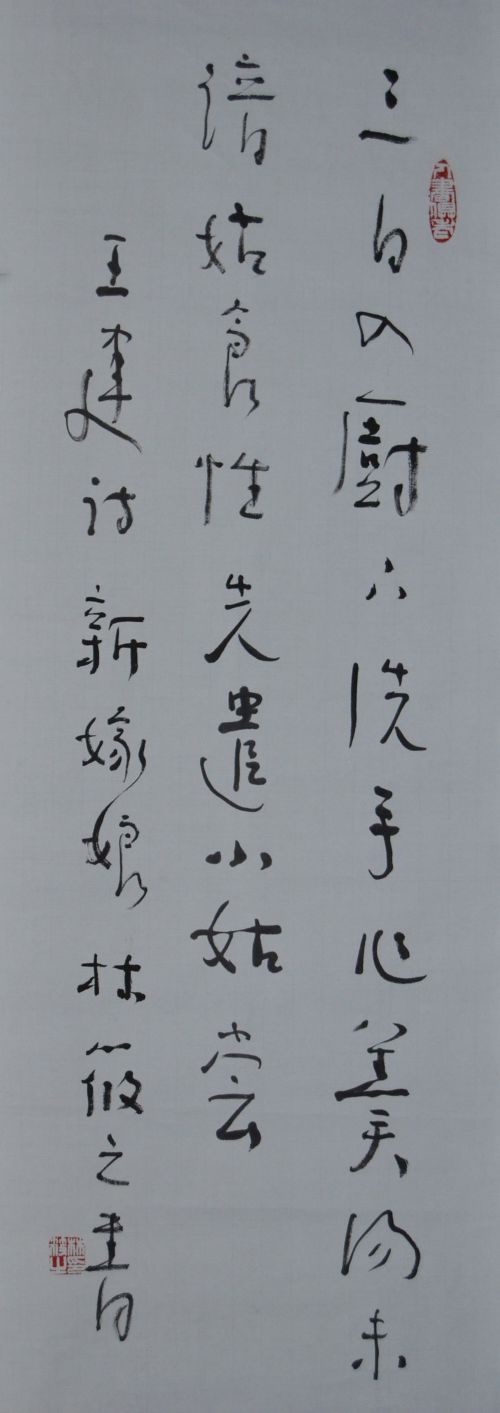 三日入廚下洗手作羹湯未
諳姑食性先遣小姑尝
王建詩新嫁娘 林筱之書